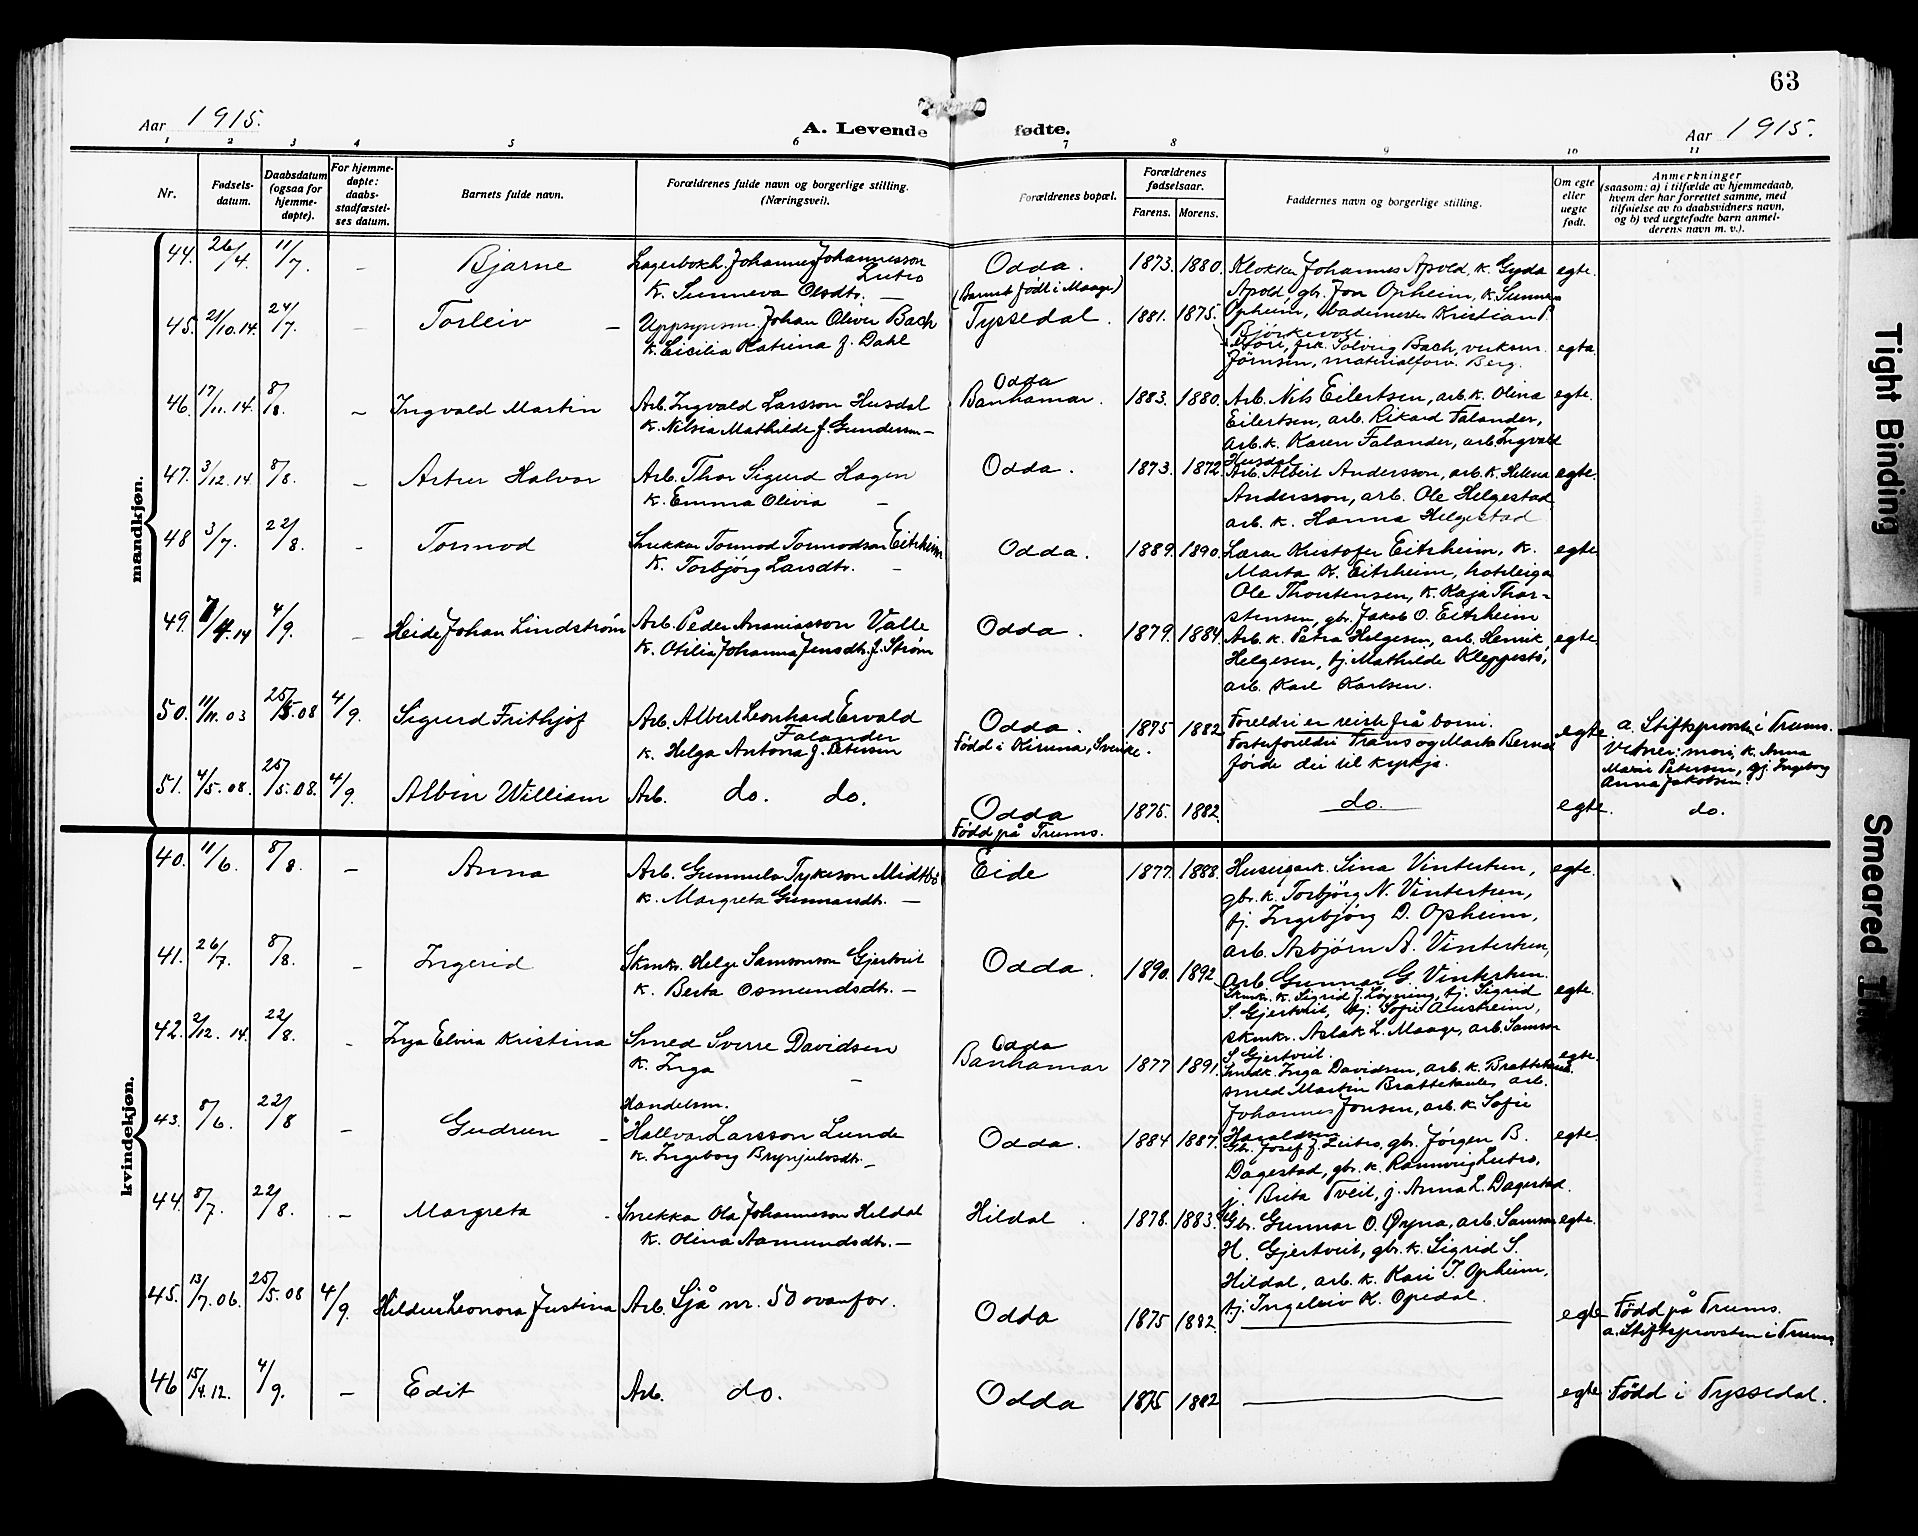 63
Aar 1915. A. Levende fødte. Aar 1915.
1 2 3 4 5 6 7 8 9 10 11
Nr.
Fødsels-
datum.
Daabsdatum
(ogsaa for
hjemme-
døpte).
For hjemme-
døpte:
daabs-
stadfæstel-
ses datum.
Barnets fulde navn.
Forældrenes fulde navn og borgerlige stilling.
(Næringsvei).
Forældrenes bopæl.
Forældrenes
fødselsaar.
Farens. Morens.
Faddernes navn og borgerlige stilling.
Om egte
eller
uegte
født.
Anmerkninger
(saasom: a) i tilfælde av hjemmedaab,
hvem der har forrettet samme, med
tilføielse av to daabsvidners navn,
og b) ved uegtefødte barn anmel-
derens navn m. v.).
mandkjøn.
44. 26/4. 11/7. – Bjarne
Lagerbokh. Johannes Johannesson
Lutro
K. Sunneva Olsdtr. –
Odda.
(Barnet født i Maage)
1873. 1880.
Klokkar Johannes Apold, k. Gyda
Apold, gbr. Jon Opheim, k. Sunneva
Opheim, Kristian P.
Bjørkevoll
egte.
45. 21/10.14. 24/7. – Torleiv –
Uppsynsm. Johan Oliver Bach
K. Cicilia Katrina f. Dahl
Tyssedal.
1881. 1875.
frk. Solveig Bach, verksm.
Jørnsen, materialforv. Berg.
egta.
46. 17/11.14. 8/8. – Ingvald Martin
Arb. Ingvald Larsson Husdal
K. Nilsia Mathilde f. Gunderson –
Odda
Banhamar.
1883. 1880.
Arb. Nils Eilertsen, arb. k. Olina
Eilertsen, arb. Rikard Falander,
arb. k. Karen Falander, arb. Ingvald
Husdal
egte.
47. 3/12.14 8/8. – Artur Halvor
Arb. Thor Sigurd Hagen
K. Emma Olivia –
Odda.
1873. 1872.
Arb. Albert Andersson, arb. k. Helena
Andersson, arb. Ole Helgestad
arb. k. Hanna Helgestad
egte.
48 3/7. 22/8. – Tormod
Snikkar Tormod Tormodson Eitrheim
K. Torbjørg Larsdtr. –
Odda.
1889. 1890.
Lærar Kristofer Eitrheim, k.
Marta K. Eitrheim, hotelleigar
Ole Thorstensen, k. Kaja Thor-
stensen, gbr. Jakob O. Eitrheim
egte
49. 7/4.14 4/9. – Heide Johan Lindstrøm
Arb. Peder Ananiasson Valle
K. Otilia Johanna Jensdtr. f. Strøm
Odda.
1879. 1884.
Arb. k. Petra Helgesen, arb. Henrik
Helgesen, tj. Mathilde Kleppestø,
arb. Karl Karlsen.
egte
50. 11/11.03 25/5.08 4/9. Sigurd Frithjof
Arb. Albert Leonhard Ervald
Falander
K. Helga Antona f. Petersen
Odda
Fødd i Kiruna, Sverike.
1875 1882
Foreldri er reiste frå borni.
Fosterforeldri Frans og Marta Bernas
førde dei til kyrkja.
egte.
a. Stiftsprosten i Trums.
Vitner: mori, k. Anna
Marie Petersen, gj. Ingeborg
Anna Jakobsen.
51. 4/5.08. 25/5.08. 4/9. Albin William
Arb. do. do.
Odda
Fødd på Trums.
1875. 1882.
do.
egte.
do.
kvindekjøn.
40. 11/6. 8/8. – Anna
Arb. Gunnula Tykeson Midtbø
K. Margreta Gunnarsdtr. –
Eide
1877. 1888.
Huseigark. Sina Vintertun,
gbr. k. Torbjørg N. Vintertun,
tj. Ingebjørg D. Opheim,
arb. Asbjørn A. Vintertun,
arb. Gunnar G. Vintertun.
egte.
41. 26/7. 8/8. – Ingerid
Skmkr. Helge Samsonson Gjertveit
K. Berta Osmundsdtr. –
Odda.
1890. 1892.
Skmkr. k. Sigrid J. Løyning, tj. Sigrid
S. Gjertveit, tj. Sofie Austreim,
skmkr. Aslak L. Maage, arb. Samson
S. Gjertveit.
egte.
42. 2/12.14. 22/8. – Inga Elvira Kristina
Smed Sverre Davidsen
K. Inga –
Odda
Banhamar
1877 1891.
Smedk. Inga Davidsen, arb. k. Brattetaule
smed Martin Brattetaule, arb.
Johannes Jonsen, arb. k. Sofie
Haraldsen
egte.
43. 8/6. 22/8 – Gudrun –
Handelsm.
Hallvar Larsson Lunde
K. Ingeborg Brynjulvsdtr. –
Odda.
1884 1887.
Gbr. Josef J. Lutro, gbr. Jørgen B.
Dagestad, gbr. k. Rannveig Lutro,
j. Brita Tveit, j. Anna L. Dagestad.
egte.
44. 8/7. 22/8. – Margreta –
Snekka Ola Johannesson Hildal
K. Olina Aamundsdtr. –
Hildal.
1878. 1883.
Gbr. Gunnar O. Øyna, arb. Samson
H. Gjertveit, gbr. k. Sigrid S.
Hildal, arb. k. Kari T. Opheim,
tj. Ingeleiv K. Opedal.
egte.
45. 13/7.06. 25/5.08 4/9. Hildur Leonora Justina
Arb. Sjå nr. 50 ovanfor.
Odda
1875 1882.
egte
Fødd på Trums.
a. Stiftsprovsten i Trums
46 15/4.12. 4/9. – Edit
Arb. do.
Odda
1875 1882
egte
Fødd i Tyssedal.
Tight Binding
Smeared